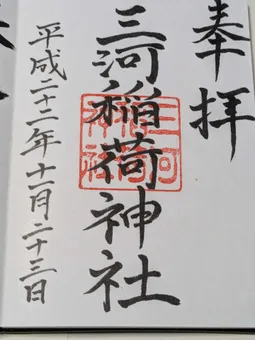 奉拝
三河稲荷神社
三河稲荷神社
平成二十二年十一月二十三日